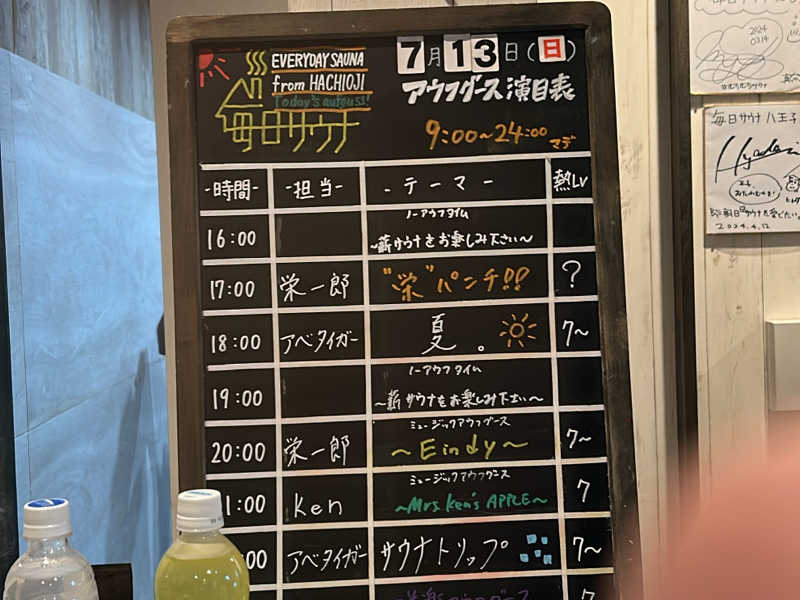 EVERYDAY SAUNA
from HACHIOJI
Today's aufguss!
毎日サウナ
7月13日(日)
アウフグース演目表
9:00~24:00マデ
-時間- -担当- -テーマ- 熱Lv
ノーアウフタイム
16:00 ~薪サウナをお楽しみ下さい~
17:00 栄一郎 "栄"パンチ!! ?
18:00 アベタイガー 夏。 7~
ノーアウフタイム
19:00 ~薪サウナをお楽しみ下さい~
ミュージックアウフグース
20:00 栄一郎 ~Eindy~ 7~
ミュージックアウフグース
1:00 Ken ~Mrs. Ken's APPLE~ 7
:00 アベタイガー サウナトリップ 7~
アウフグース 7
2024
0314
毎日サウナ 八王子
2024.4.12